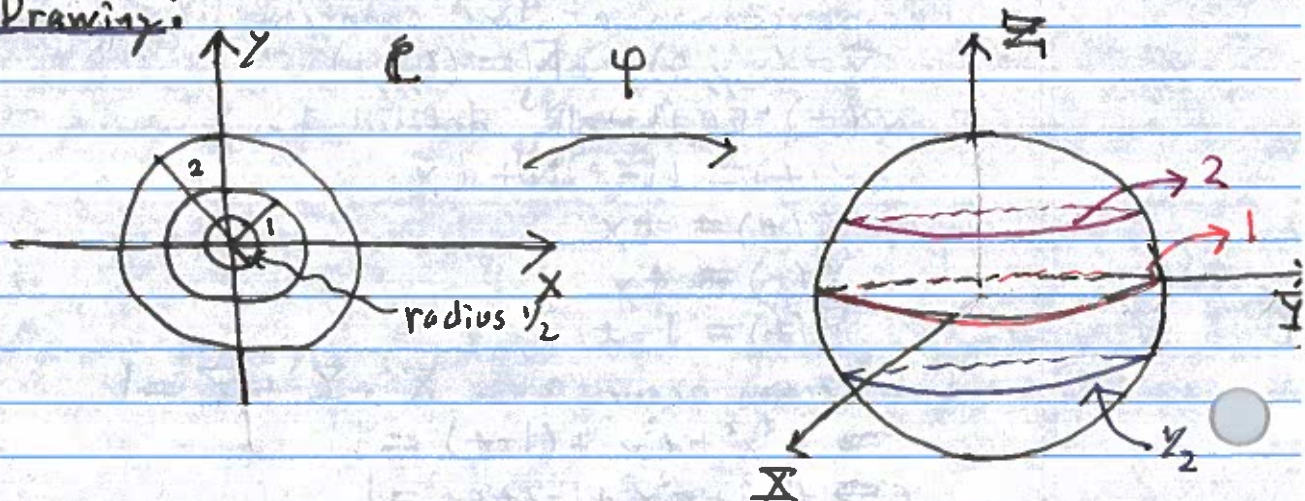 Drawing:
y
ℂ
φ
Z
2
1
x
radius 1/2
2
1
Y
X
1/2